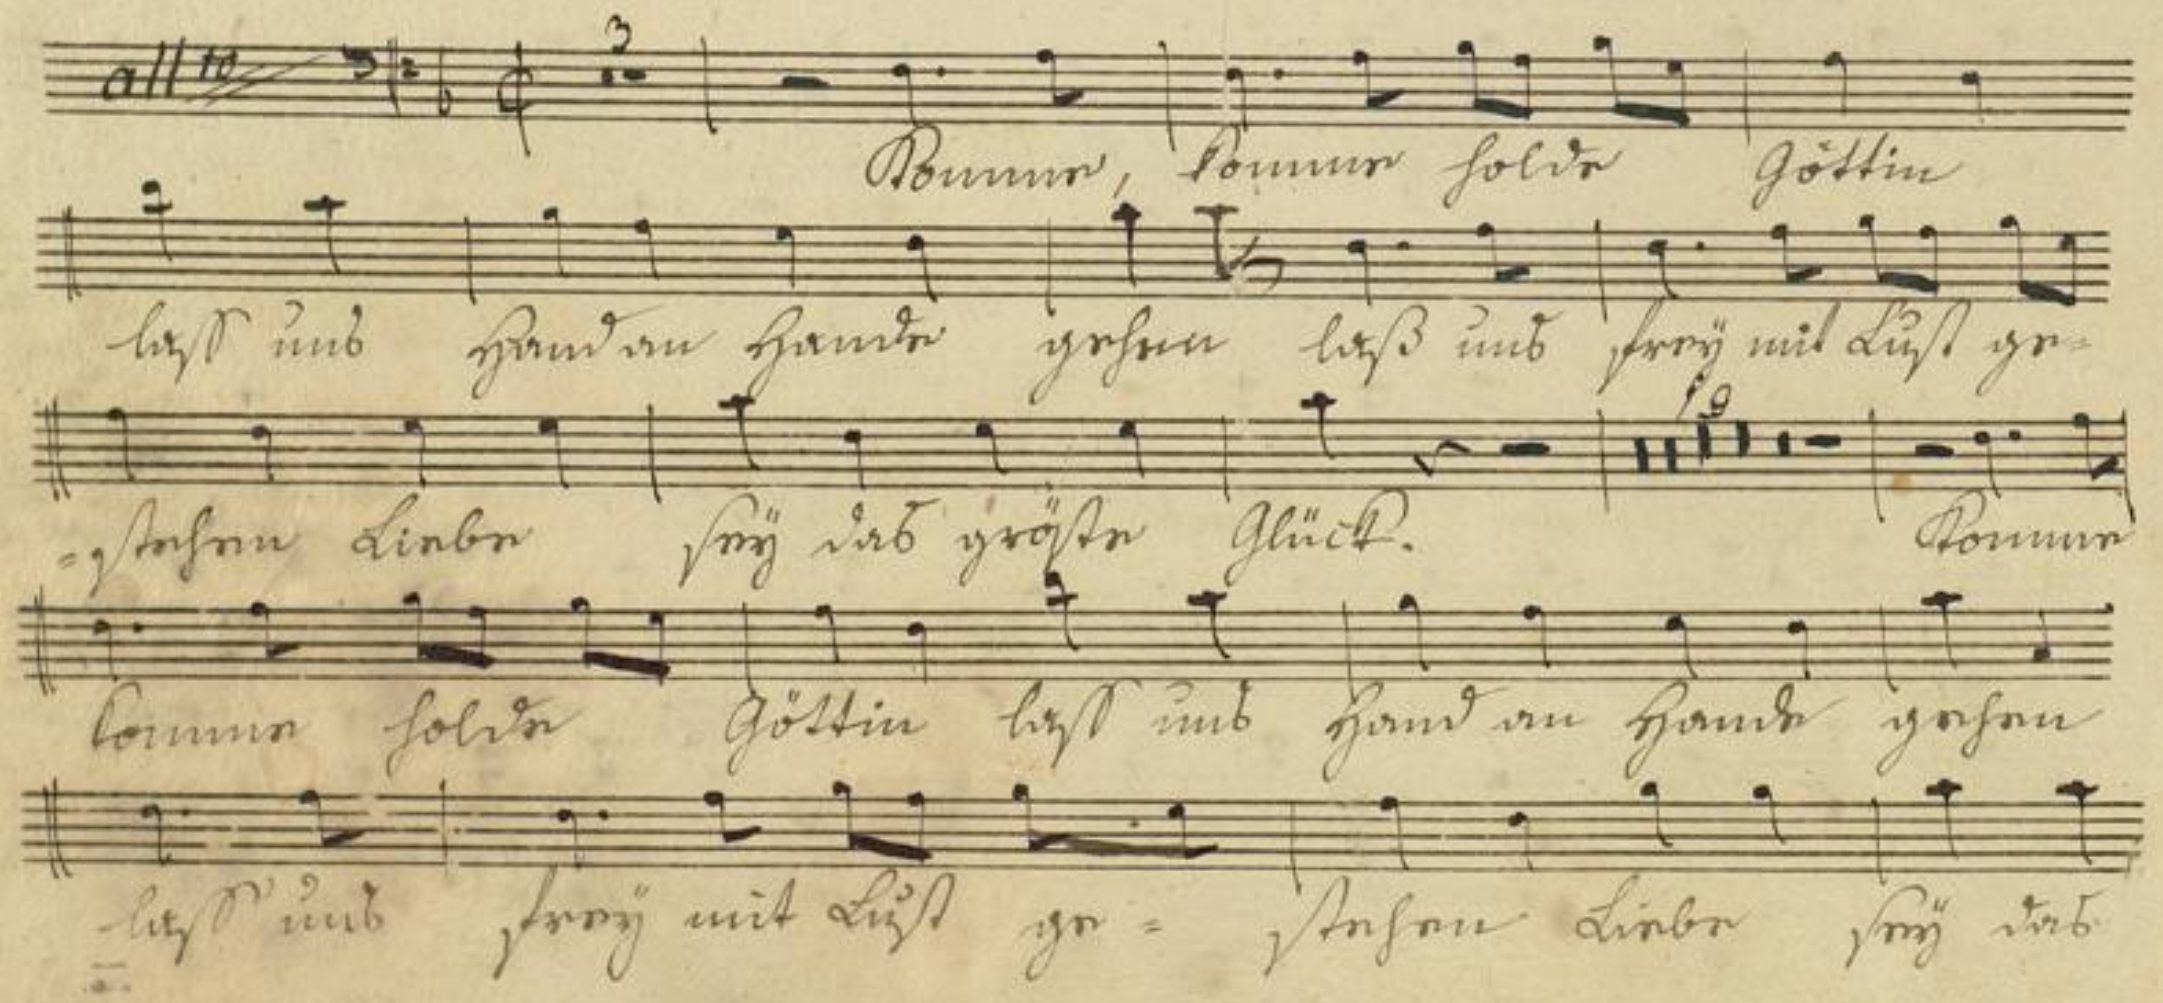 all to 3
Komme, komme holde Göttin
lass uns Hand an Hande gehen laß uns freÿ mit Lust ge=
=stehen Liebe seÿ das gröste Glück.
19
Komme
komme holde Göttin lass uns Hand an Hande gehen
lass uns freÿ mit Lust ge= stehen Liebe seÿ das